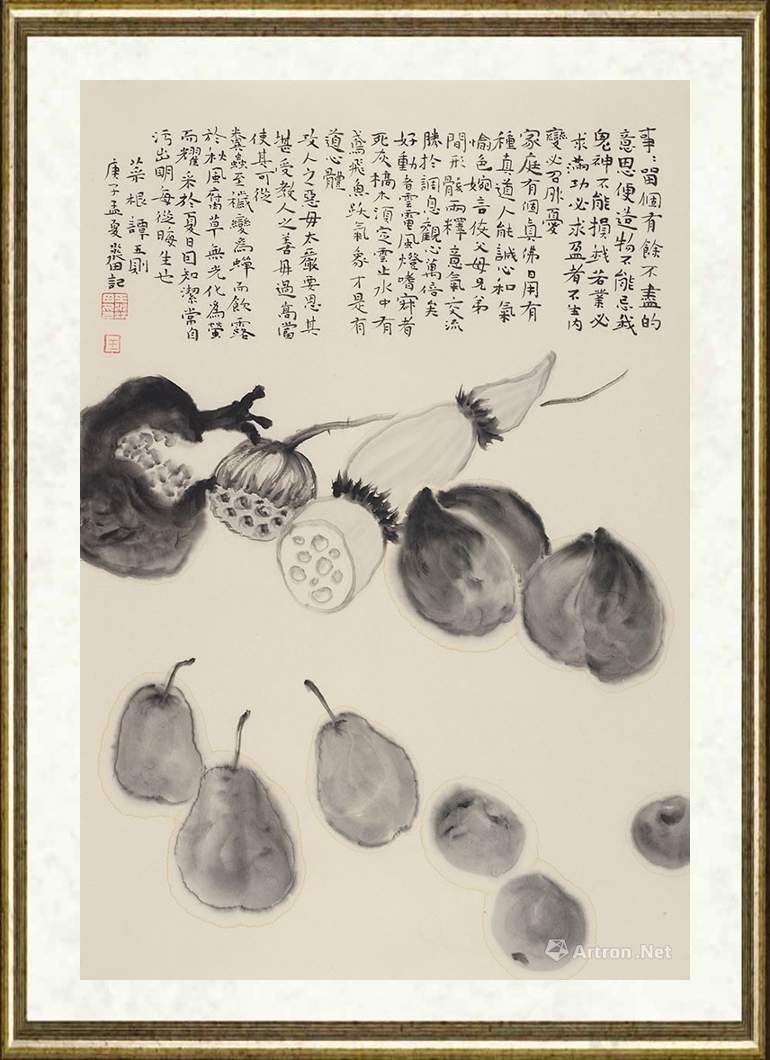 事:留個有餘不盡的
意思便造物不能忌我
鬼神不能損我若業必
求滿功必求盈者不生內
變必召外憂
家庭有個真佛日用有
種真道人能誠心和氣
愉色婉言使父母兄弟
間形骸兩釋意氣交流
勝於調息觀心萬倍矣
好動者雲電風燈嗜寂者
死灰槁木須定雲止水中有
鳶飛魚躍氣象才是有
道心體
攻人之惡毋太嚴要思其
堪受教人之善毋過高當
使其可從
糞蟲至穢變為蟬而飲露
於秋風腐草無光化為螢
而耀采於夏日固知潔常自
污出明每從晦生也
菜根譚五則
庚子孟夏淼田記
Artron.Net